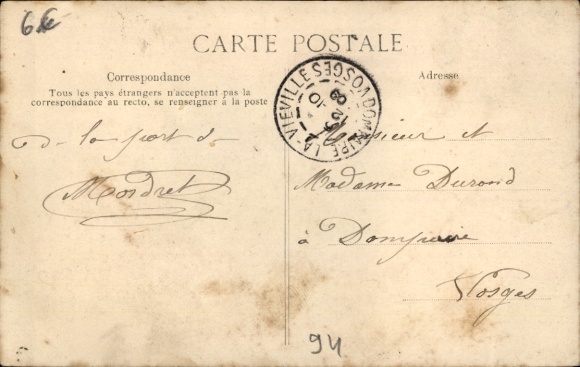 6€
CARTE POSTALE
Correspondance
Tous les pays étrangers n'acceptent pas la
correspondance au recto, se renseigner à la poste
Adresse
LA-VIEVILLE VOSGES DOMPAIRE
de la part de
Mordret
Monsieur et
Madame Durand
à Dompaire
Vosges
94